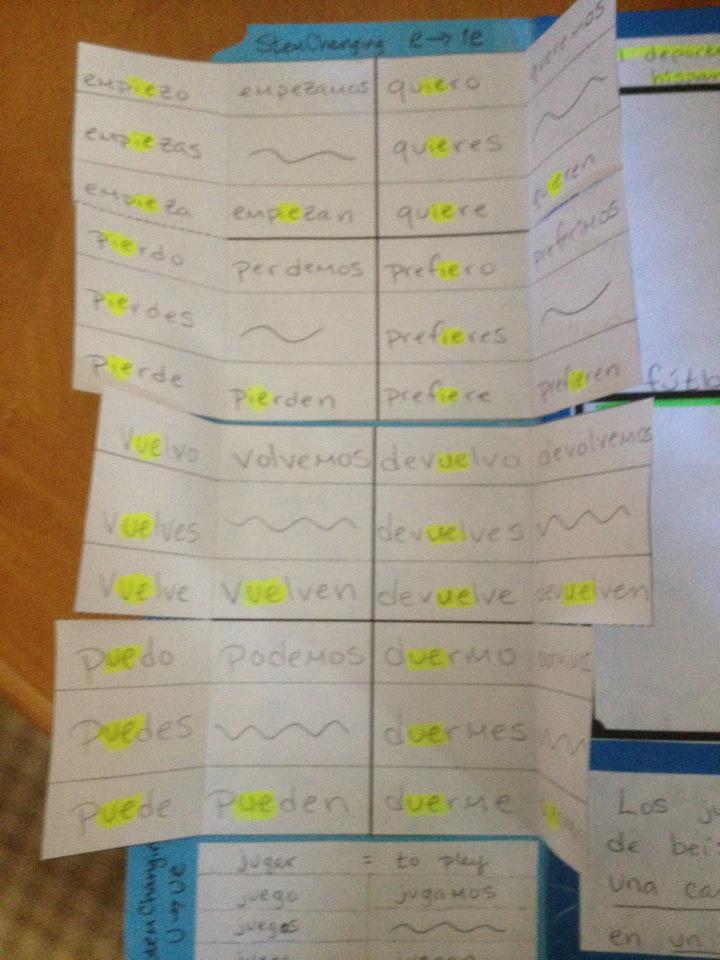 Stem Changing e→ie
empiezo empezamos quiero queremos
empiezas quieres
empieza empiezan quiere quieren
Pierdo perdemos prefiero preferimos
Pierdes prefieres
Pierde Pierden prefiere prefieren
Vuelvo volvemos devuelvo devolvemos
Vuelves devuelves
Vuelve Vuelven devuelve devuelven
puedo Podemos duermo
Puedes duermes
Puede Pueden duerme
jugar = to play
juego jugamos
juegas
Stem Changing
U→ue
hispan
fútb
Los ju
de beis
una ca
en un